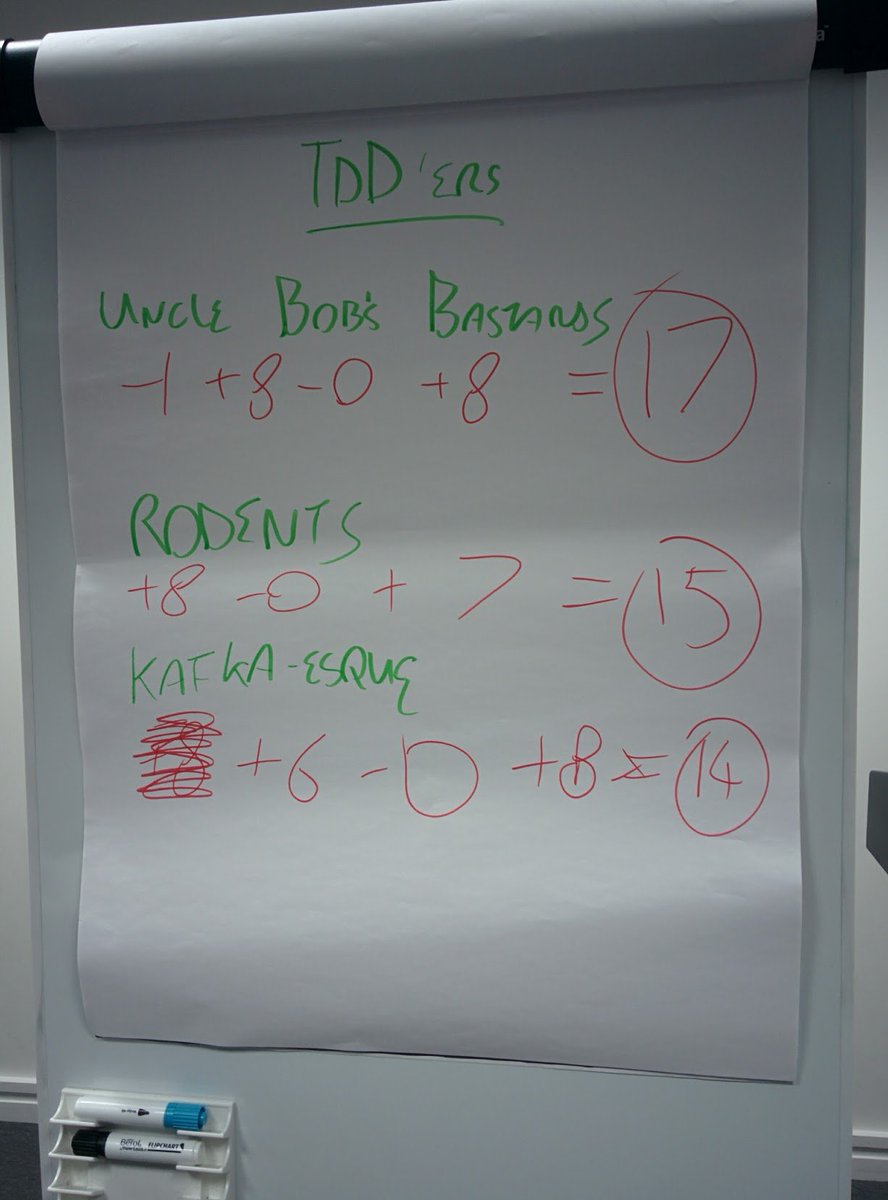 TDD'ERS
UNCLE BOB'S BASTARDS
-1 +8 -0 +8 = 17
RODENTS
+8 -0 + 7 = 15
KAFKA-ESQUE
+6 -0 +8 = 14
FLIPCHART